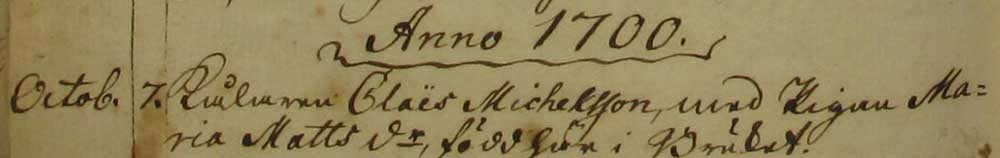 Anno 1700.
Octob. 7. Kuluren Claës Michelsson, med Pigan Ma=
ria Matts dr, född här i Brüket.